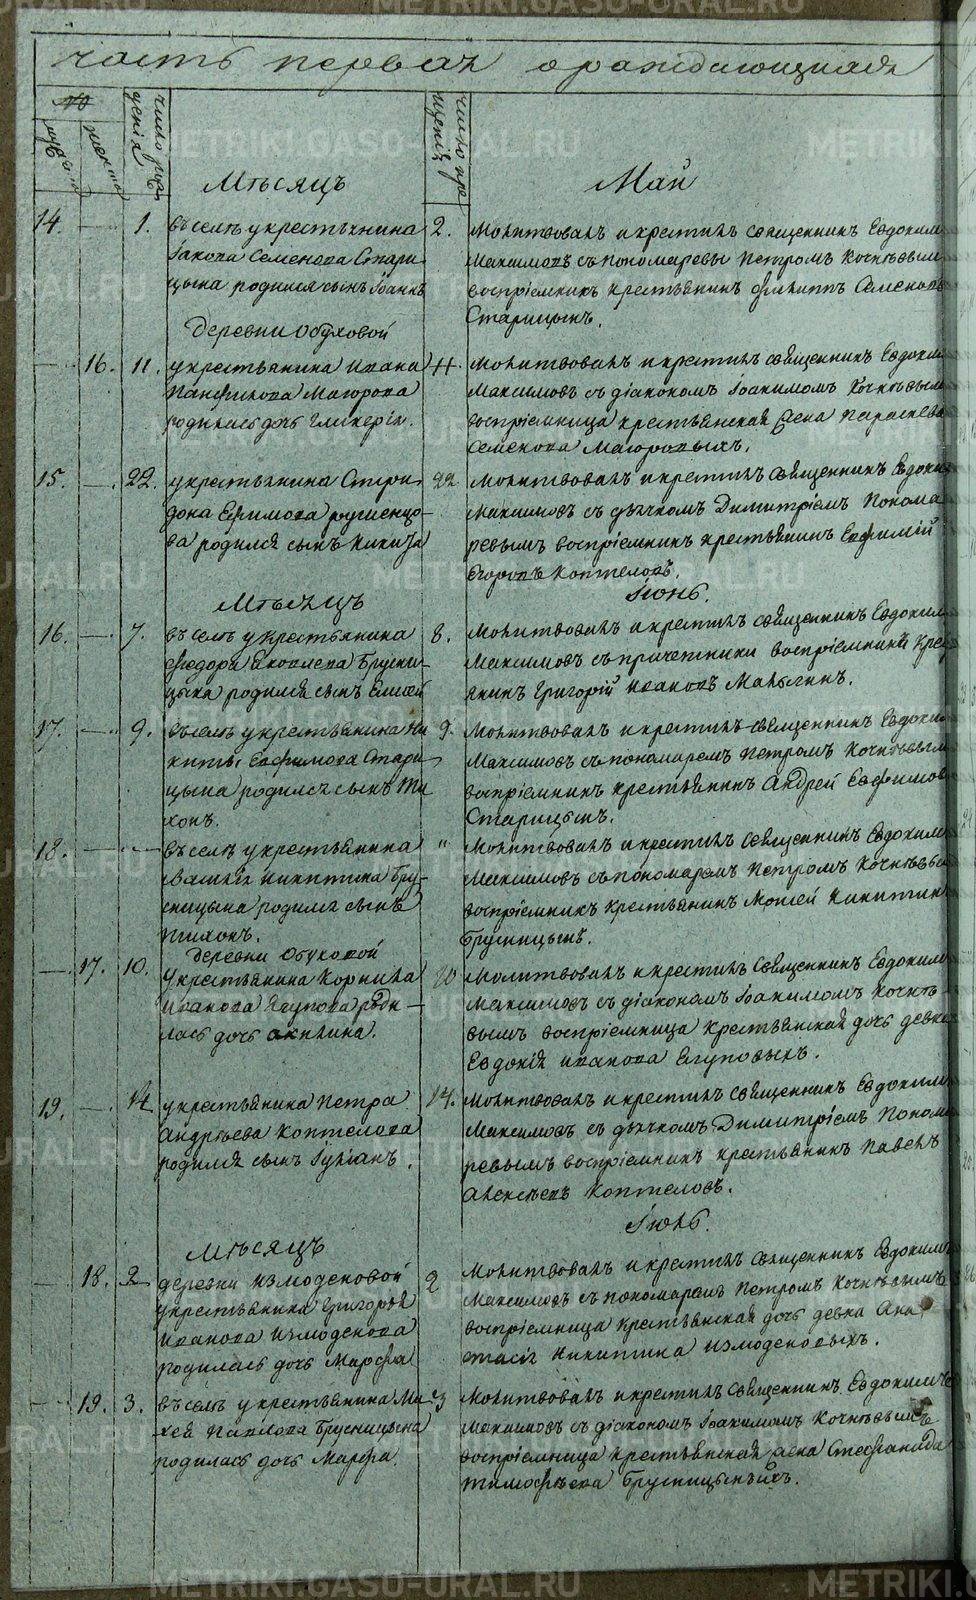 часть первая о раждающихся
№
мужеска
женска
число рождения
число крещения
Мѣсяцъ Май
14. — 1. въ селѣ у крестьянина
Іакова Семенова Стари-
цына родился сынъ Іоаннъ
2. Молитвовалъ и крестилъ священникъ Евдокимъ
Максимовъ съ пономаремъ Петромъ Кочнѣвымъ
воспріемникъ крестьянинъ Филиппъ Семеновъ
Старицынъ.
деревни Обуховой
— 16. 11. у крестьянина Ивана
Панфилова
родилась дочь Гликерія.
11. Молитвовалъ и крестилъ священникъ Евдокимъ
Максимовъ съ діакономъ Іоакимомъ Кочнѣвымъ
воспріемница крестьянская жена Параскева
Семенова
15. — 22. у крестьянина Спири-
дона Ефимова
родился сынъ Никита
22 Молитвовалъ и крестилъ священникъ Евдокимъ
Максимовъ съ дьячкомъ Димитріемъ Понома
ревымъ воспріемникъ крестьянинъ Евфимій
Егоровъ Коптеловъ.
Мѣсяцъ Іюнь.
16. — 7. въ селѣ у крестьянина
Феодора Яковлева Брусни-
цына родился сынъ Елисей
8. Молитвовалъ и крестилъ священникъ Евдокимъ
Максимовъ съ причетники воспріемникъ крес
янинъ Григорій Ивановъ
17. — 9. въ селѣ у крестьянина Ни
киты Евфимова Стари
цына родился сынъ Ти
хонъ.
9. Молитвовалъ и крестилъ священникъ Евдокимъ
Максимовъ съ пономаремъ Петромъ Кочнѣвымъ
воспріемникъ крестьянинъ Андрей Евфимовъ
Старицынъ.
18. — — въ селѣ у крестьянина
Василія Никитина Бру-
сницына родился сынъ
Тихонъ.
" Молитвовалъ и крестилъ священникъ Евдокимъ
Максимовъ съ пономаремъ Петромъ Кочнѣвы
воспріемникъ крестьянинъ Моисей Никитин
Брусницынъ.
деревни Обуховой
— 17. 10. у крестьянина Корнила
Иванова Ягупова роди-
лась дочь Акилина.
10 Молитвовалъ и крестилъ священникъ Евдокимъ
Максимовъ съ діакономъ Іоакимомъ Кочнѣ
вымъ воспріемница крестьянская дочь девка
Евдокія Иванова Ягуповыхъ.
19. — 14 у крестьянина Петра
Андрѣева Коптелова
родился сынъ Іуліанъ.
14. Молитвовалъ и крестилъ священникъ Евдокимъ
Максимовъ съ дьячкомъ Димитріемъ Поном
ревымъ воспріемникъ крестьянинъ Павелъ
Алексѣевъ Коптеловъ.
Мѣсяцъ Іюль.
— 18. 2 деревни Измоденовой
у крестьянина Григорія
Иванова Измоденова
родилась дочь Марфа
2 Молитвовалъ и крестилъ священникъ Евдокимъ
Максимовъ съ пономаремъ Петромъ Кочнѣвымъ
воспріемница крестьянская дочь девка Ана
стасія Никитина Измоденовыхъ.
— 19. 3. въ селѣ у крестьянина Ми
хея Павлова Брусницына
родилась дочь Марфа.
3 Молитвовалъ и крестилъ священникъ Евдокимъ
Максимовъ съ діакономъ Іоакимомъ Кочнѣвымъ
воспріемница крестьянская жена Стефанида
Тимофѣева Брусницыныхъ.
METRIKI.GASO-URAL.RU